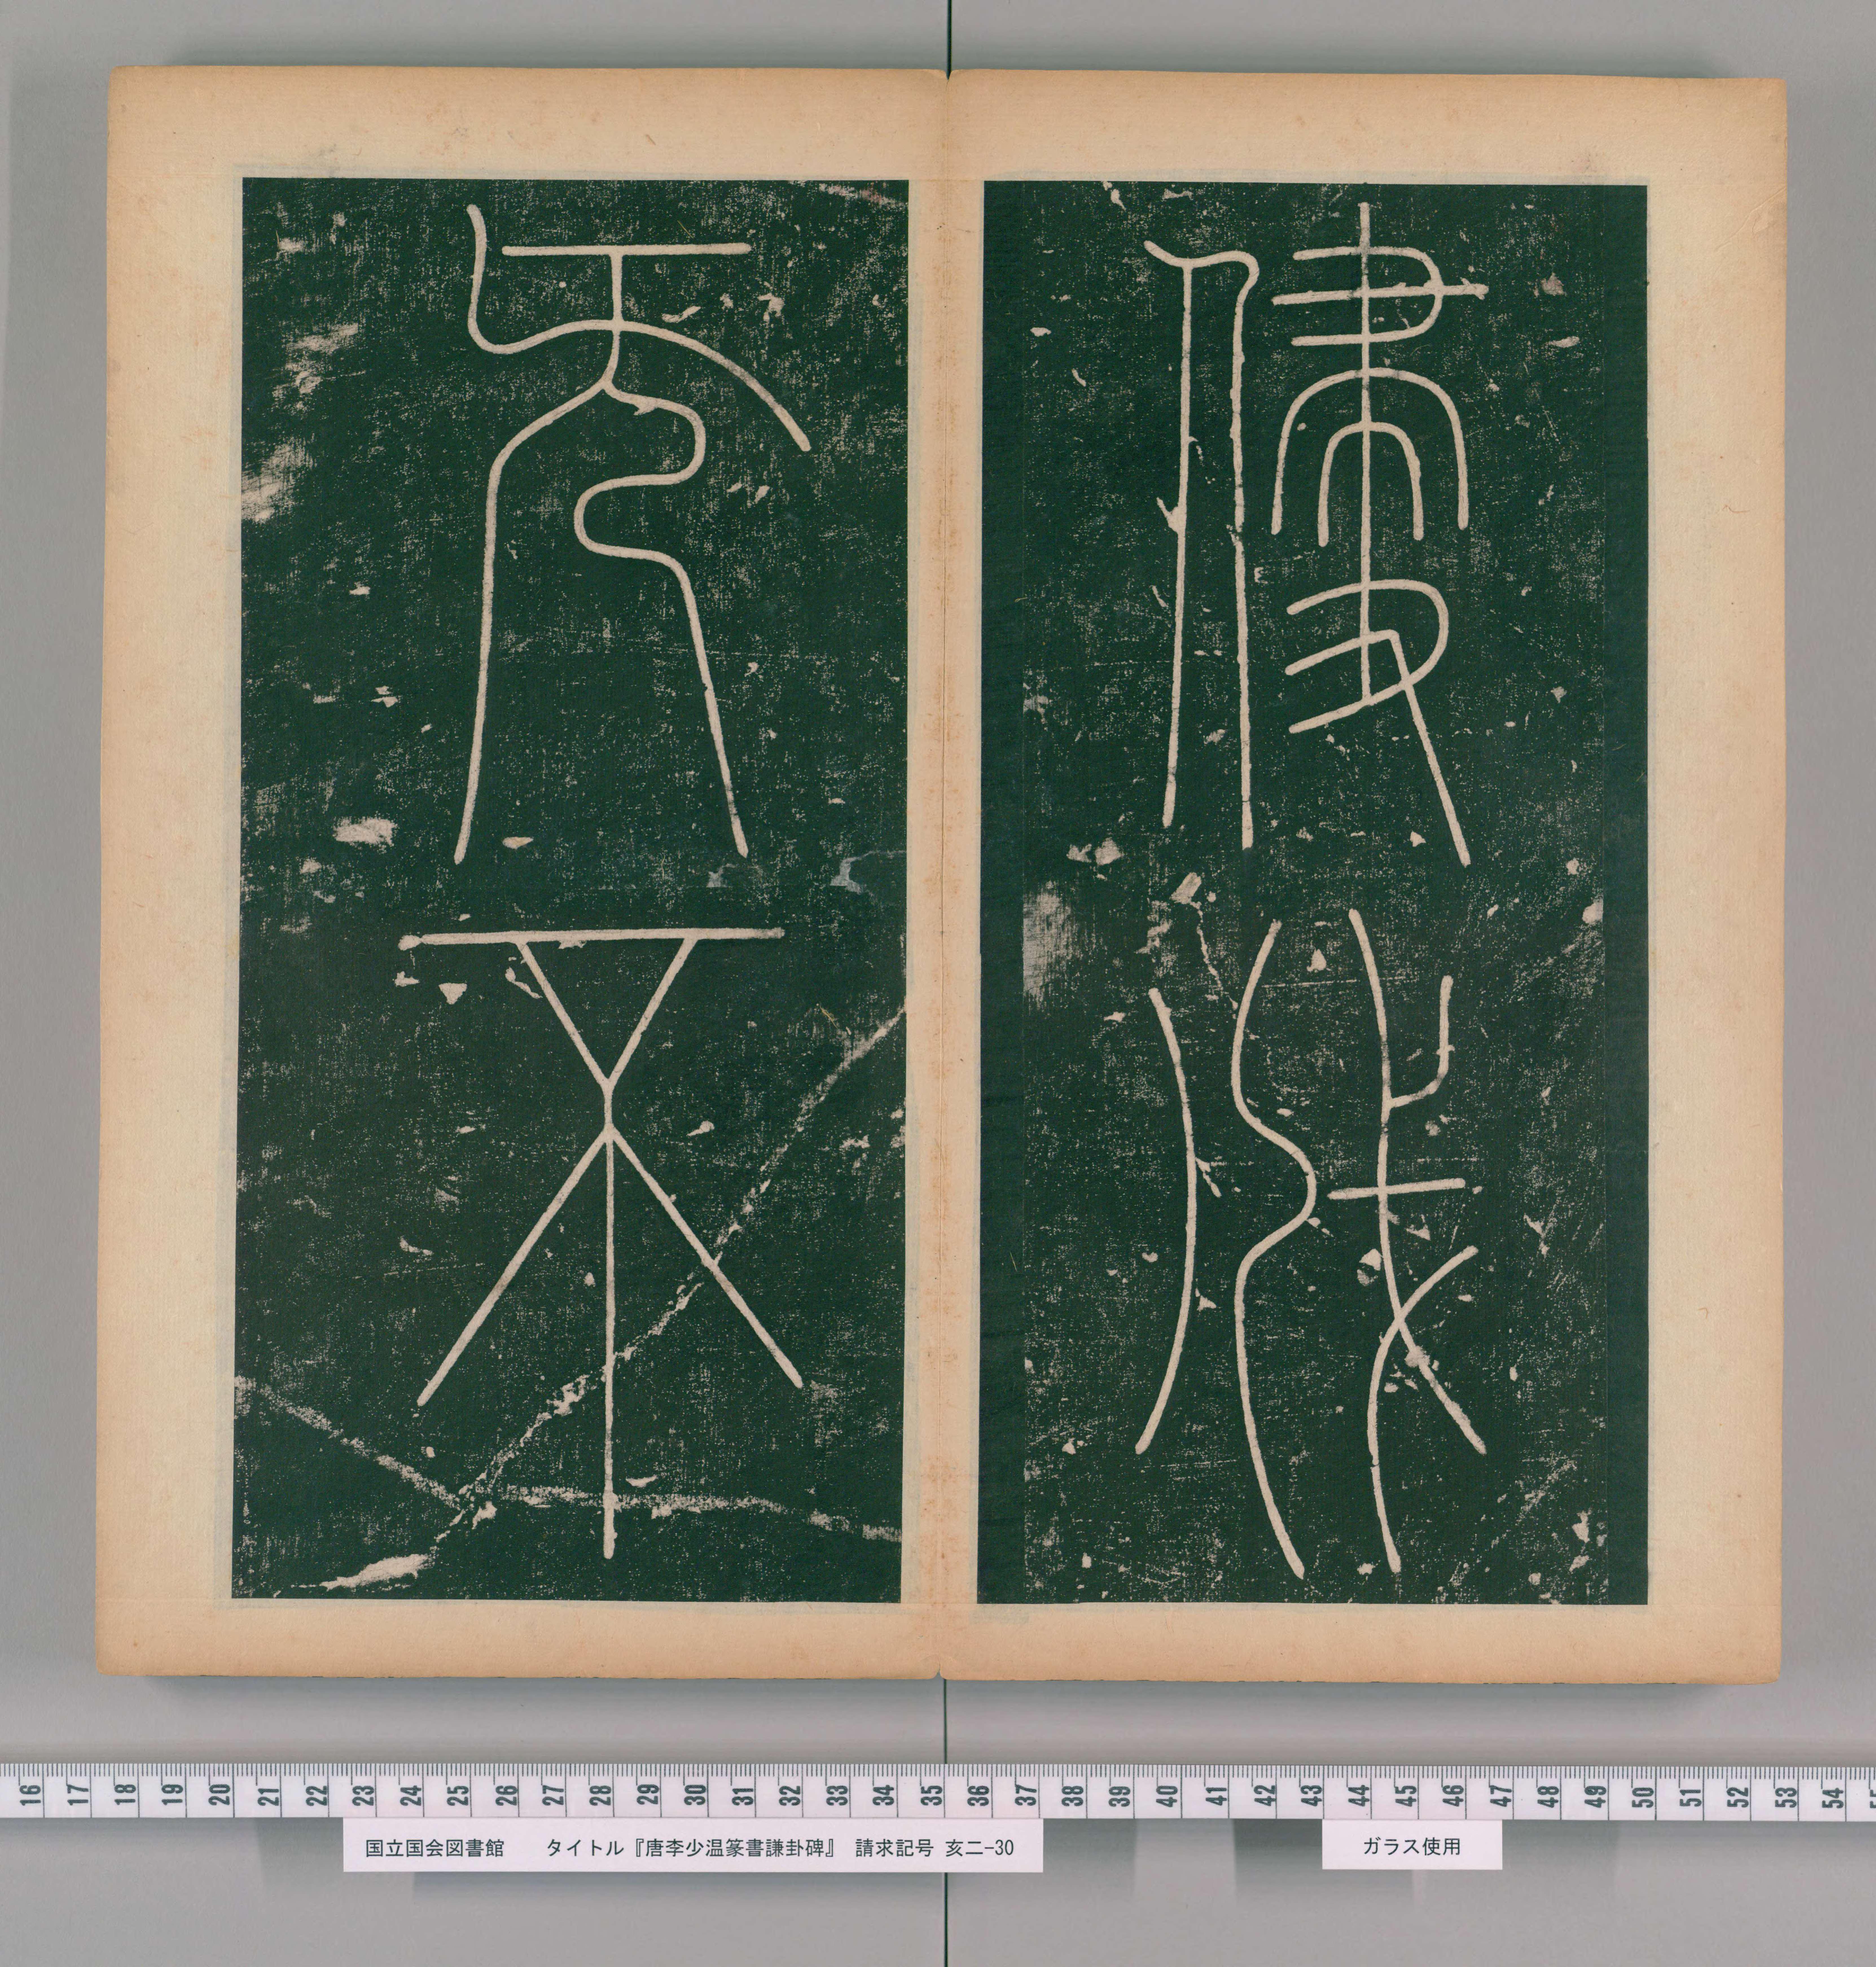 侵伐
无不
16 17 18 19 20 21 22 23 24 25 26 27 28 29 30 31 32 33 34 35 36 37 38 39 40 41 42 43 44 45 46 47 48 49 50 51 52 53 54
国立国会図書館　タイトル『唐李少温篆書謙卦碑』 請求記号 亥二-30
ガラス使用